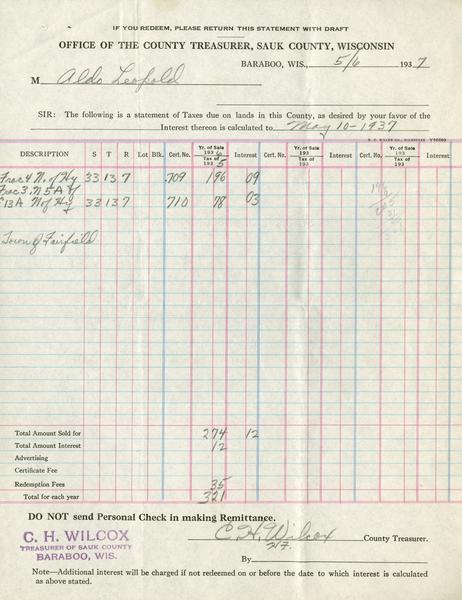 IF YOU REDEEM, PLEASE RETURN THIS STATEMENT WITH DRAFT
OFFICE OF THE COUNTY TREASURER, SAUK COUNTY, WISCONSIN
BARABOO, WIS., 5/6 1937
M Aldo Leopold
SIR: The following is a statement of Taxes due on lands in this County, as desired by your favor of the
Interest thereon is calculated to May 10-1937
DESCRIPTION S T R Lot Blk. Cert. No. Yr. of Sale 1936 Tax of 5 Interest Cert. No. Yr. of Sale 193 Tax of 193 Interest Cert. No. Yr. of Sale 193 Tax of 193 Interest
Frac 4 N. of Hy 33 13 7 709 196 09
Frac 3. N 5 A of
13 A N of Hy 33 13 7 710 78 03
Town of Fairfield
Total Amount Sold for 274 12
Total Amount Interest 12
Advertising
Certificate Fee
Redemption Fees 35
Total for each year 321
DO NOT send Personal Check in making Remittance.
C. H. WILCOX
TREASURER OF SAUK COUNTY
BARABOO, WIS.
C. H. Wilcox County Treasurer.
By
Note—Additional interest will be charged if not redeemed on or before the date to which interest is calculated
as above stated.